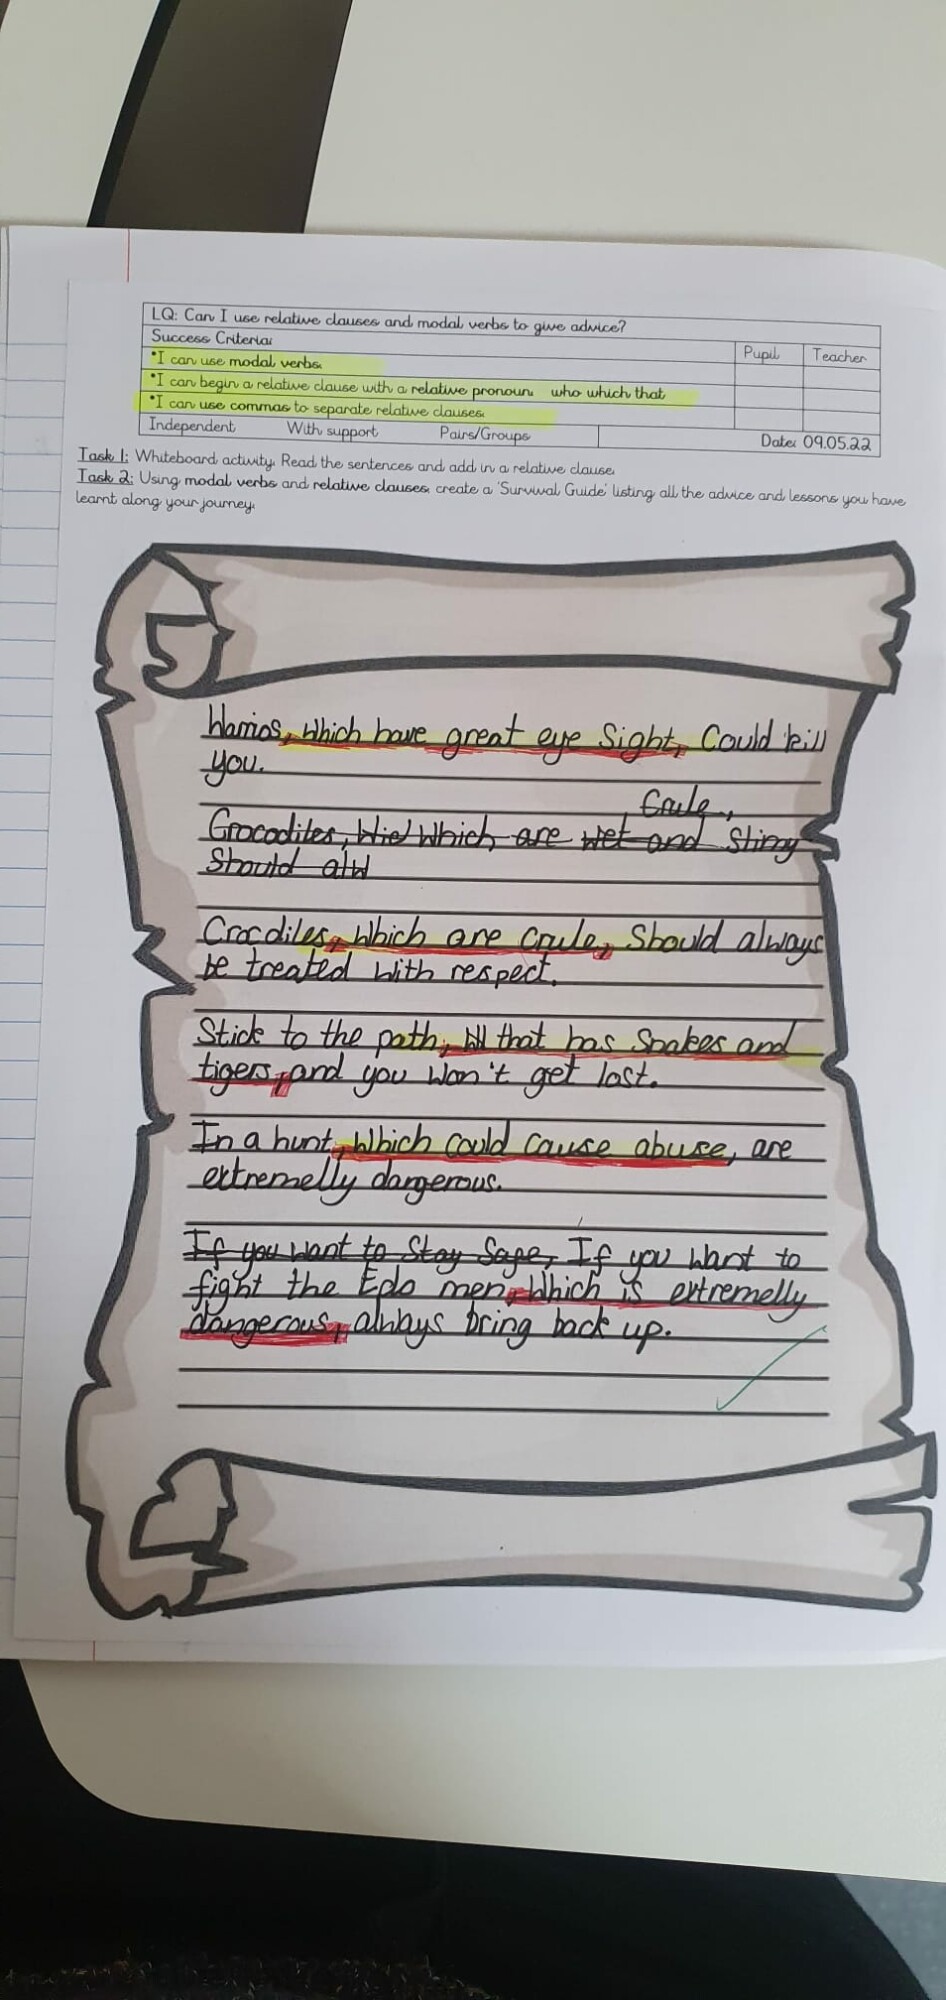 LQ: Can I use relative clauses and modal verbs to give advice?
Success Criteria:
Pupil
Teacher
*I can use modal verbs.
*I can begin a relative clause with a relative pronoun who which that
*I can use commas to separate relative clauses.
Independent With support Pairs/Groups
Date: 09.05.22
Task 1: Whiteboard activity. Read the sentences and add in a relative clause.
Task 2: Using modal verbs and relative clauses, create a 'Survival Guide' listing all the advice and lessons you have
learnt along your journey.
Warrios, which have great eye Sight, Could kill
you.
Crule,
Crocodiles, Which are wet and Slimy
Should alw
Crocdiles, Which are Crule, Should always
be treated with respect.
Stick to the path, that has Snakes and
tigers, and you Won't get lost.
In a hunt, Which could cause abuse, are
extremelly dangerous.
If you want to Stay Safe, If you Want to
fight the Edo men, Which is extremelly
dangerous, always bring back up.